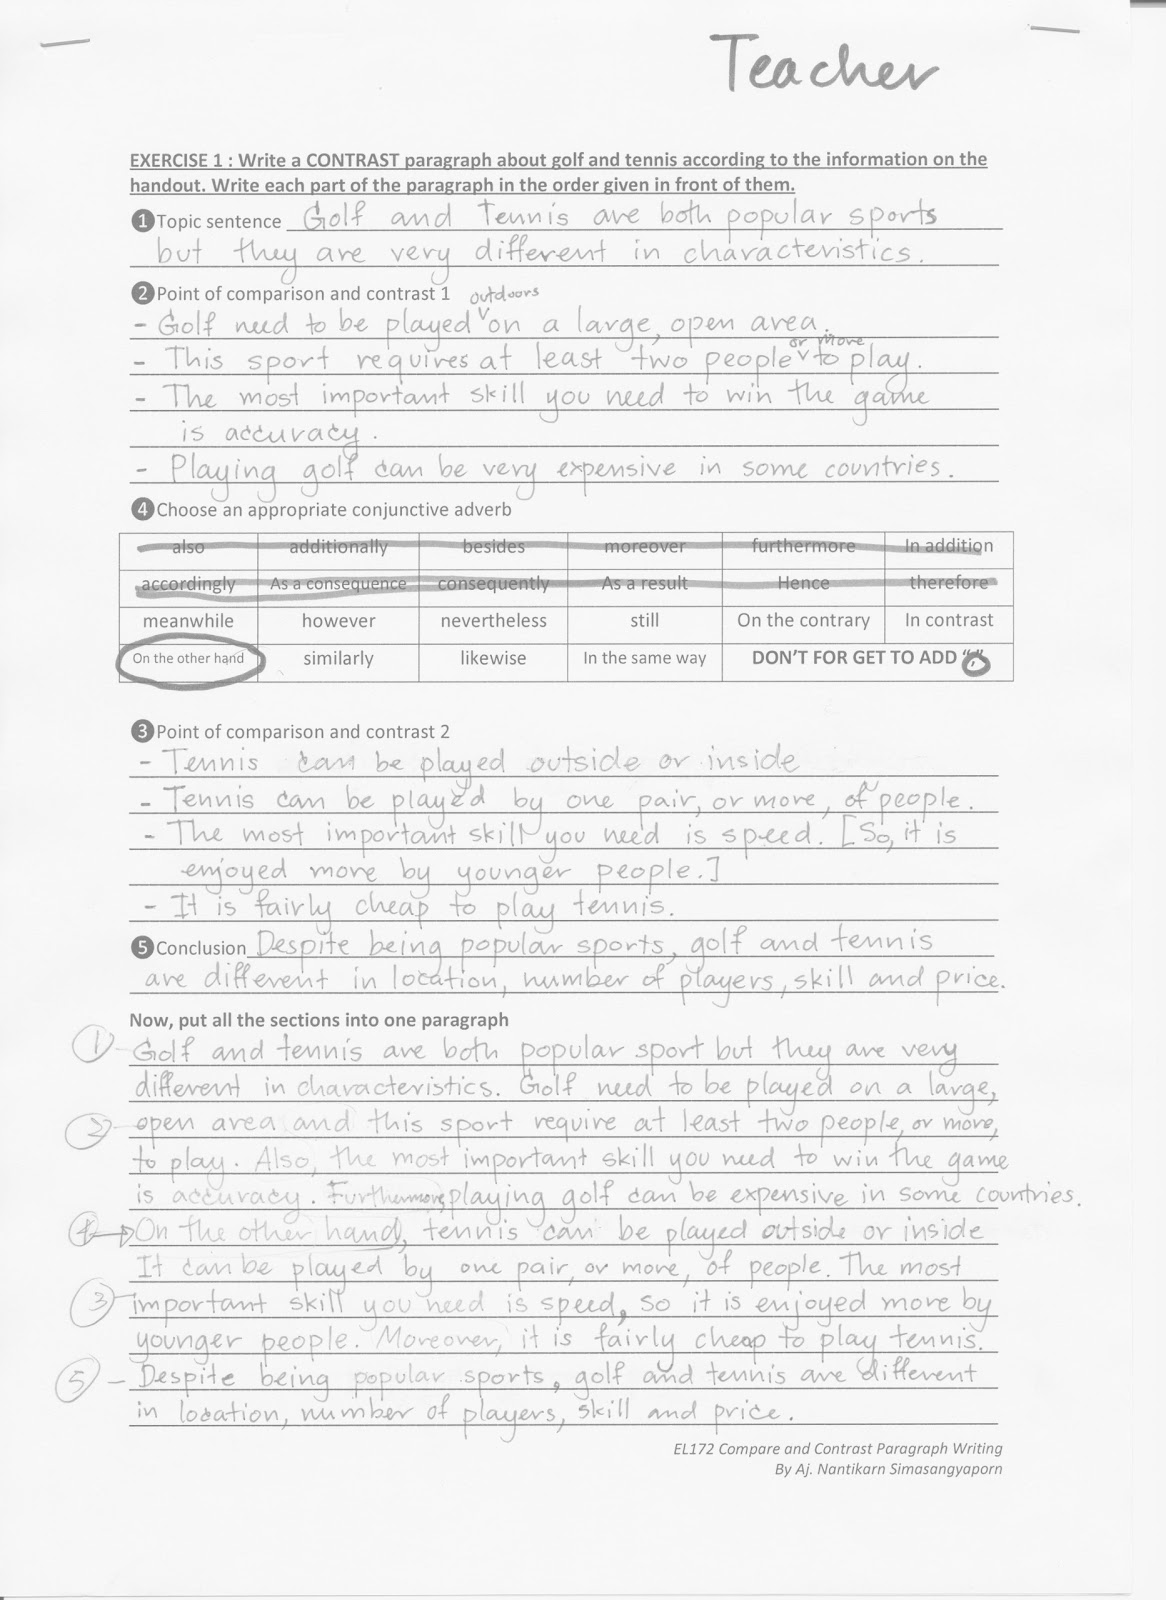 Teacher
EXERCISE 1 : Write a CONTRAST paragraph about golf and tennis according to the information on the
handout. Write each part of the paragraph in the order given in front of them.
1 Topic sentence Golf and Tennis are both popular sports
but they are very different in characteristics.
2 Point of comparison and contrast 1 outdoors
- Golf need to be played ˅ on a large, open area.
or more
- This sport requires at least two people ˅ to play.
- The most important skill you need to win the game
is accuracy.
- Playing golf can be very expensive in some countries.
4 Choose an appropriate conjunctive adverb
also additionally besides moreover furthermore In addition
accordingly As a consequence consequently As a result Hence therefore
meanwhile however nevertheless still On the contrary In contrast
On the other hand similarly likewise In the same way DON'T FOR GET TO ADD ","
3 Point of comparison and contrast 2
- Tennis can be played outside or inside
- Tennis can be played by one pair, or more, of people.
- The most important skill you need is speed. [So, it is
enjoyed more by younger people.]
- It is fairly cheap to play tennis.
5 Conclusion Despite being popular sports, golf and tennis
are different in location, number of players, skill and price.
Now, put all the sections into one paragraph
1 - Golf and tennis are both popular sport but they are very
different in characteristics. Golf need to be played on a large,
2 - open area and this sport require at least two people, or more,
to play. Also, the most important skill you need to win the game
is accuracy. Furthermore, playing golf can be expensive in some countries.
4 → On the other hand, tennis can be played outside or inside
It can be played by one pair, or more, of people. The most
3 - important skill you need is speed, so it is enjoyed more by
younger people. Moreover, it is fairly cheap to play tennis.
5 - Despite being popular sports, golf and tennis are different
in location, number of players, skill and price.
EL172 Compare and Contrast Paragraph Writing
By Aj. Nantikarn Simasangyaporn